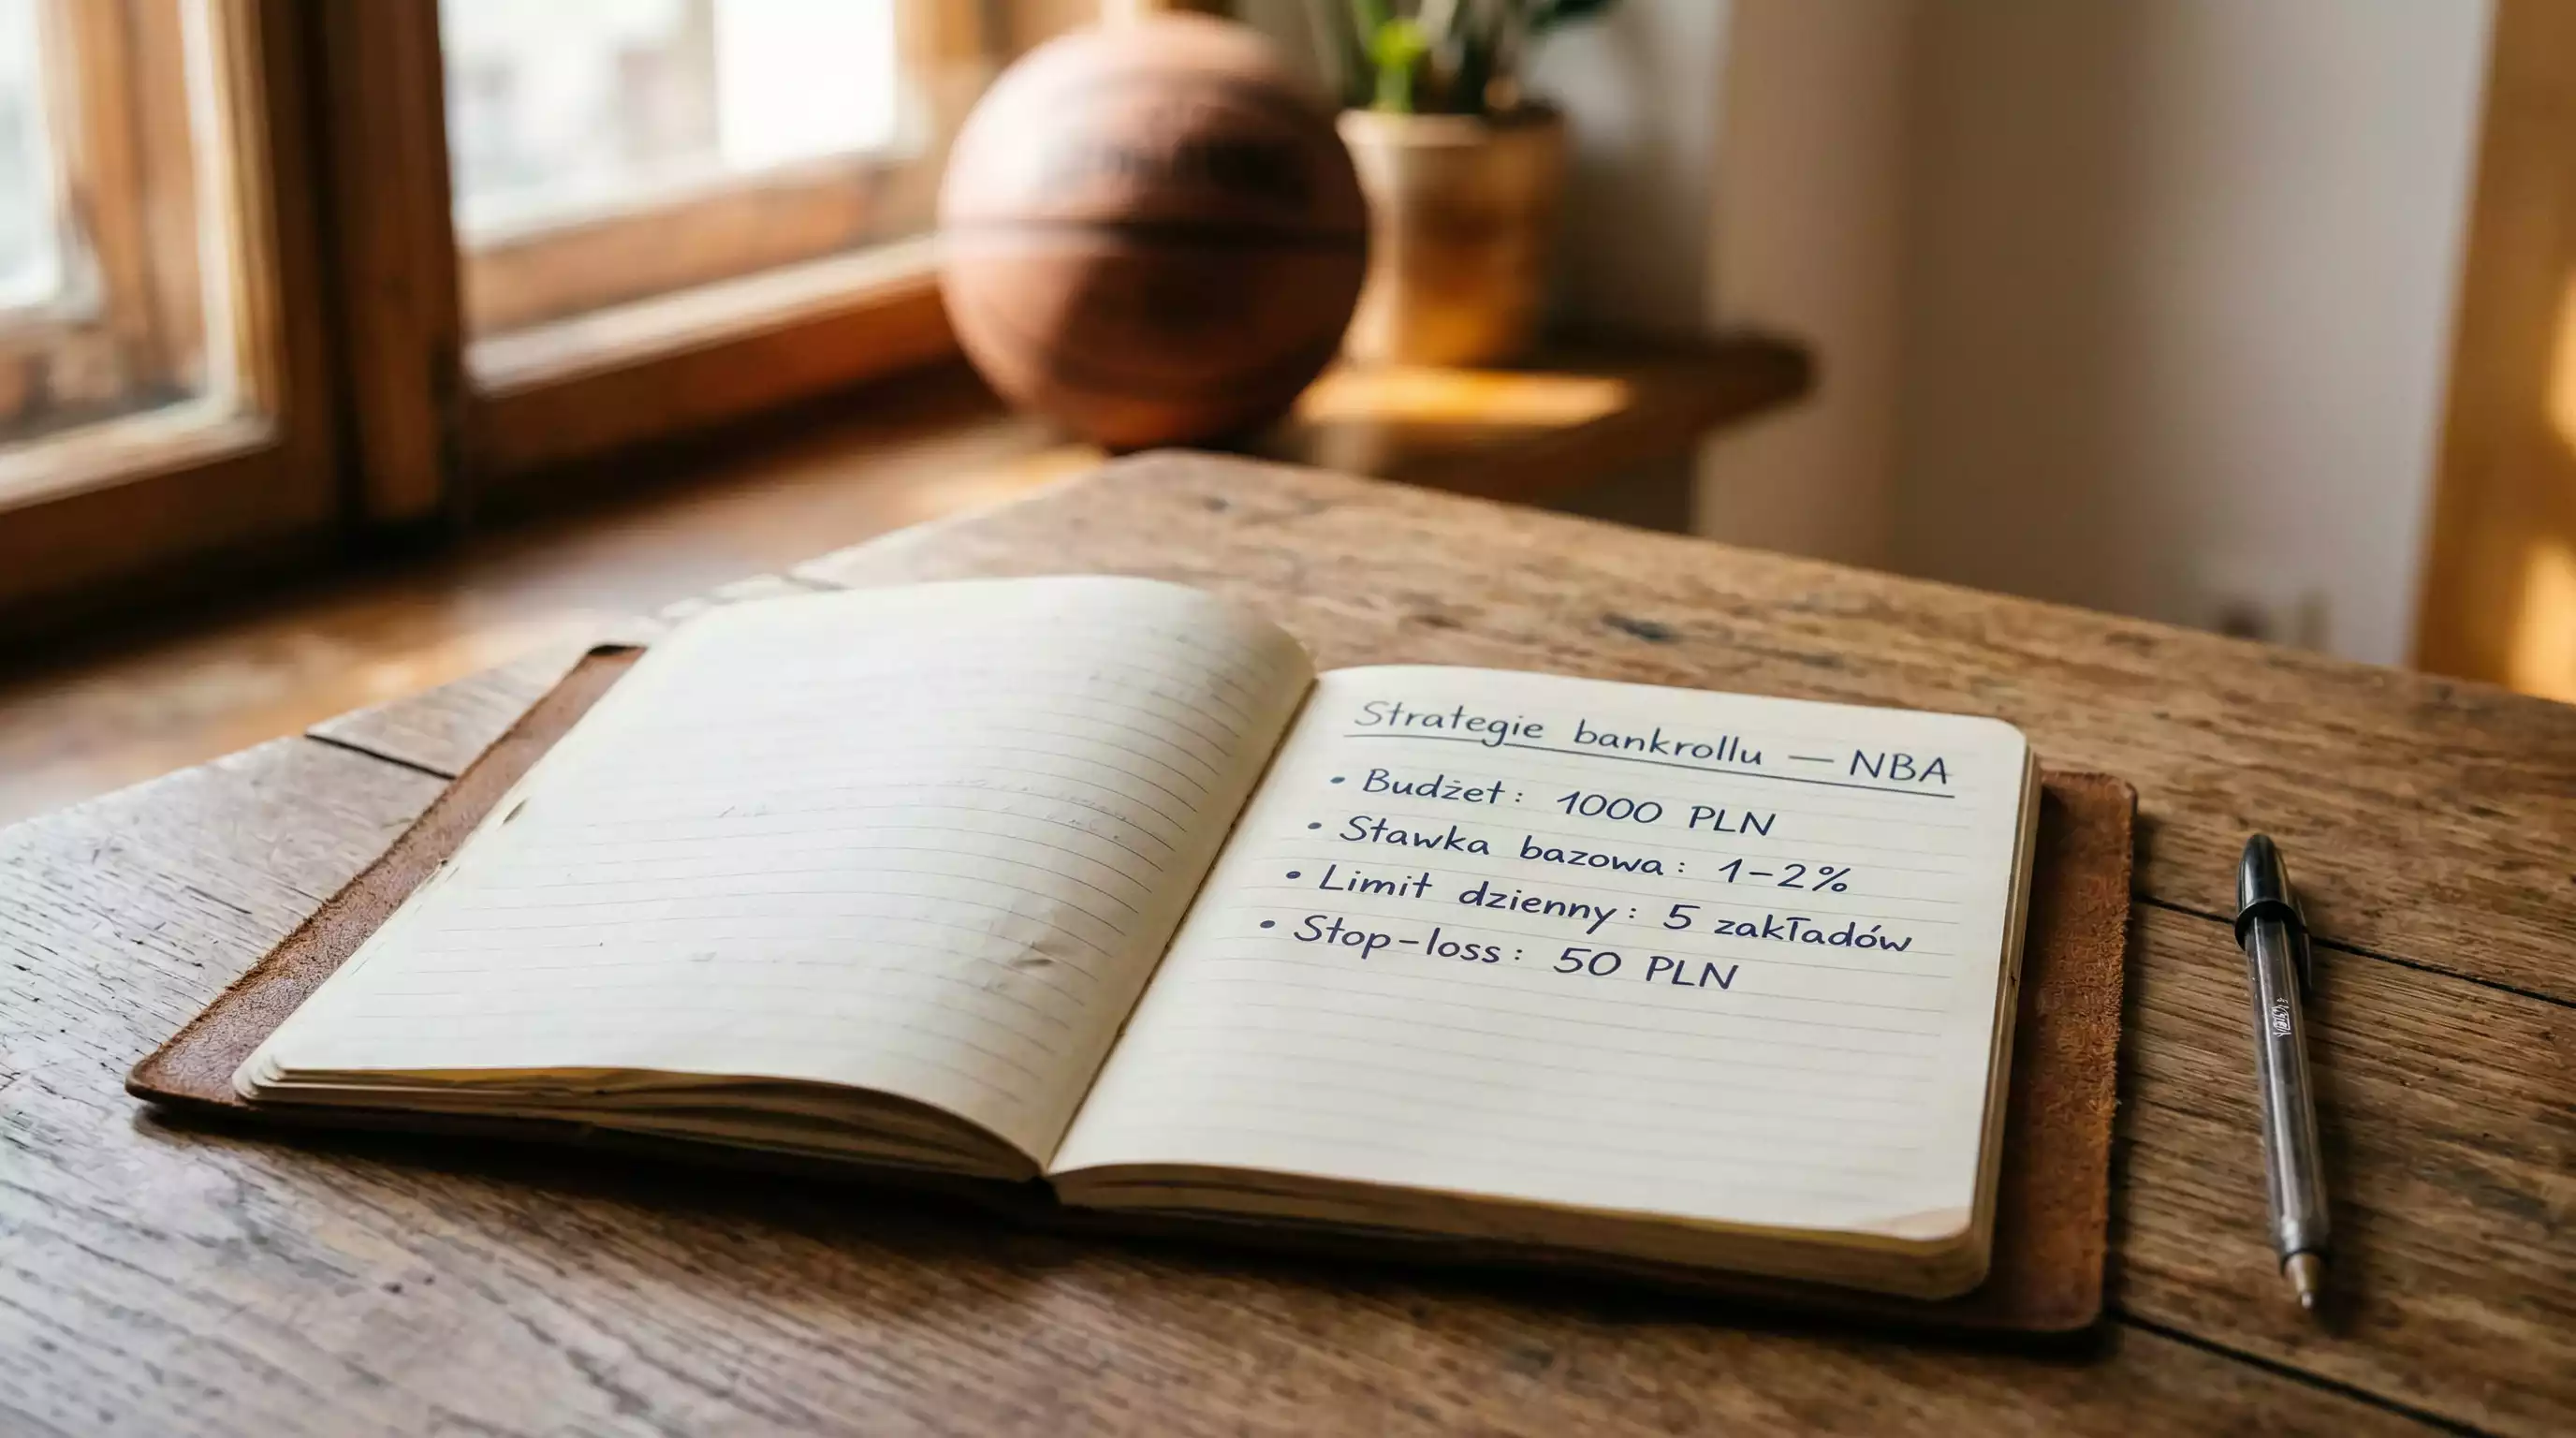 Strategie bankrollu — NBA
• Budżet: 1000 PLN
• Stawka bazowa: 1-2%
• Limit dzienny: 5 zakładów
• Stop-loss: 50 PLN